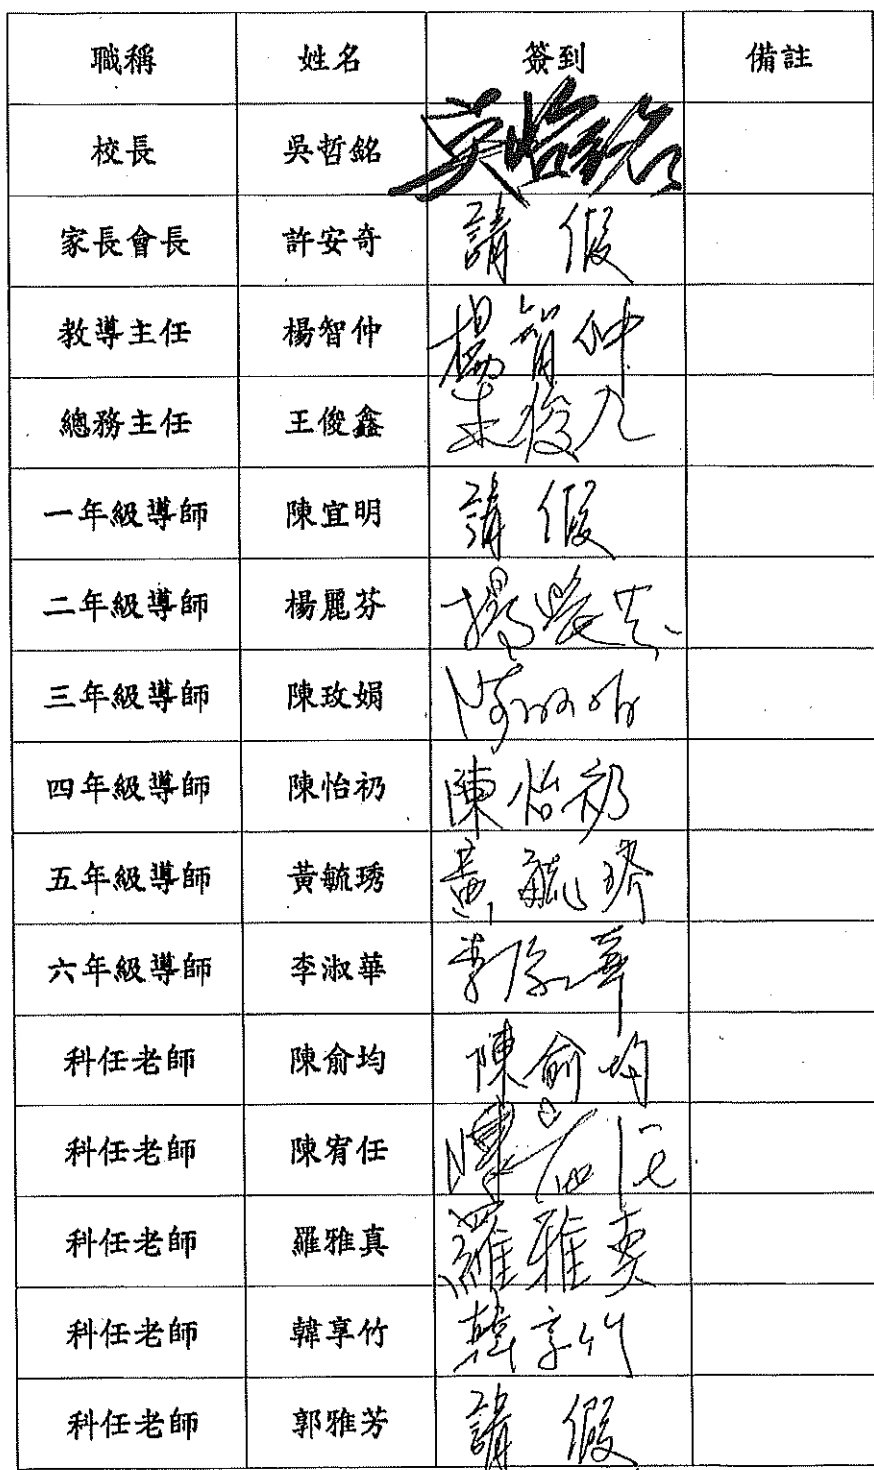 職稱 姓名 簽到 備註
校長 吳哲銘
家長會長 許安奇 請假
教導主任 楊智仲 楊智仲
總務主任 王俊鑫
一年級導師 陳宜明 請假
二年級導師 楊麗芬
三年級導師 陳玫娟
四年級導師 陳怡礽 陳怡礽
五年級導師 黃毓琇 黃毓琇
六年級導師 李淑華 李淑華
科任老師 陳俞均 陳俞均
科任老師 陳宥任 陳宥任
科任老師 羅雅真 羅雅真
科任老師 韓享竹 韓享竹
科任老師 郭雅芳 請假